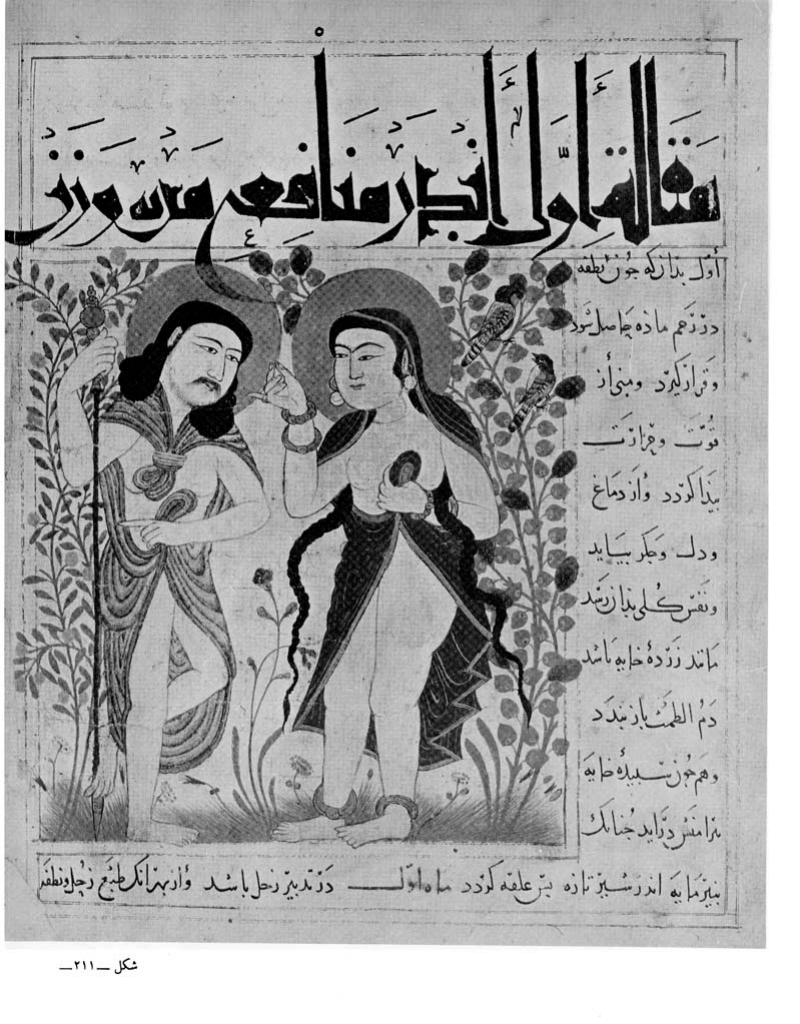 مقالة أوّل أندر منافع مردم وزن
أوّل بذانکه جون نطفه
در رحم ماده حاصل شود
وقرار کیرد ومنی أز
قوّت وحرارت
بیذا کردد وأز دماغ
ودل وجکر بیاید
ونفس کلی بذان رسد
مانند زردهٔ خایه باشد
دم الطمث باز بندد
وهم جون سبیدهٔ خایه
بیرامنش درآید جنانک
بنیر مایه اندر شیر تازه بس علقه کردد ماه اوّل در تدبیر زحل باشد وأز بهر آنک طبع زحل ونطفه
شکل —٢١١—